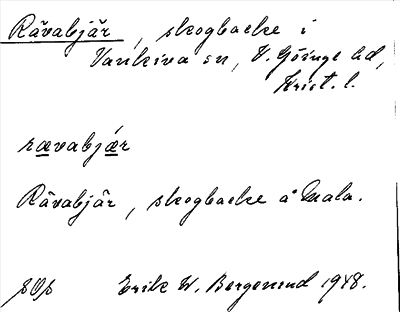 Rävabjär, skogbacke i
Vankiva sn, V. Göinge hd,
Krist. l.
rævabjær
Rävabjär, skogbacke å Mala.
Erik W. Bergensund 1948.